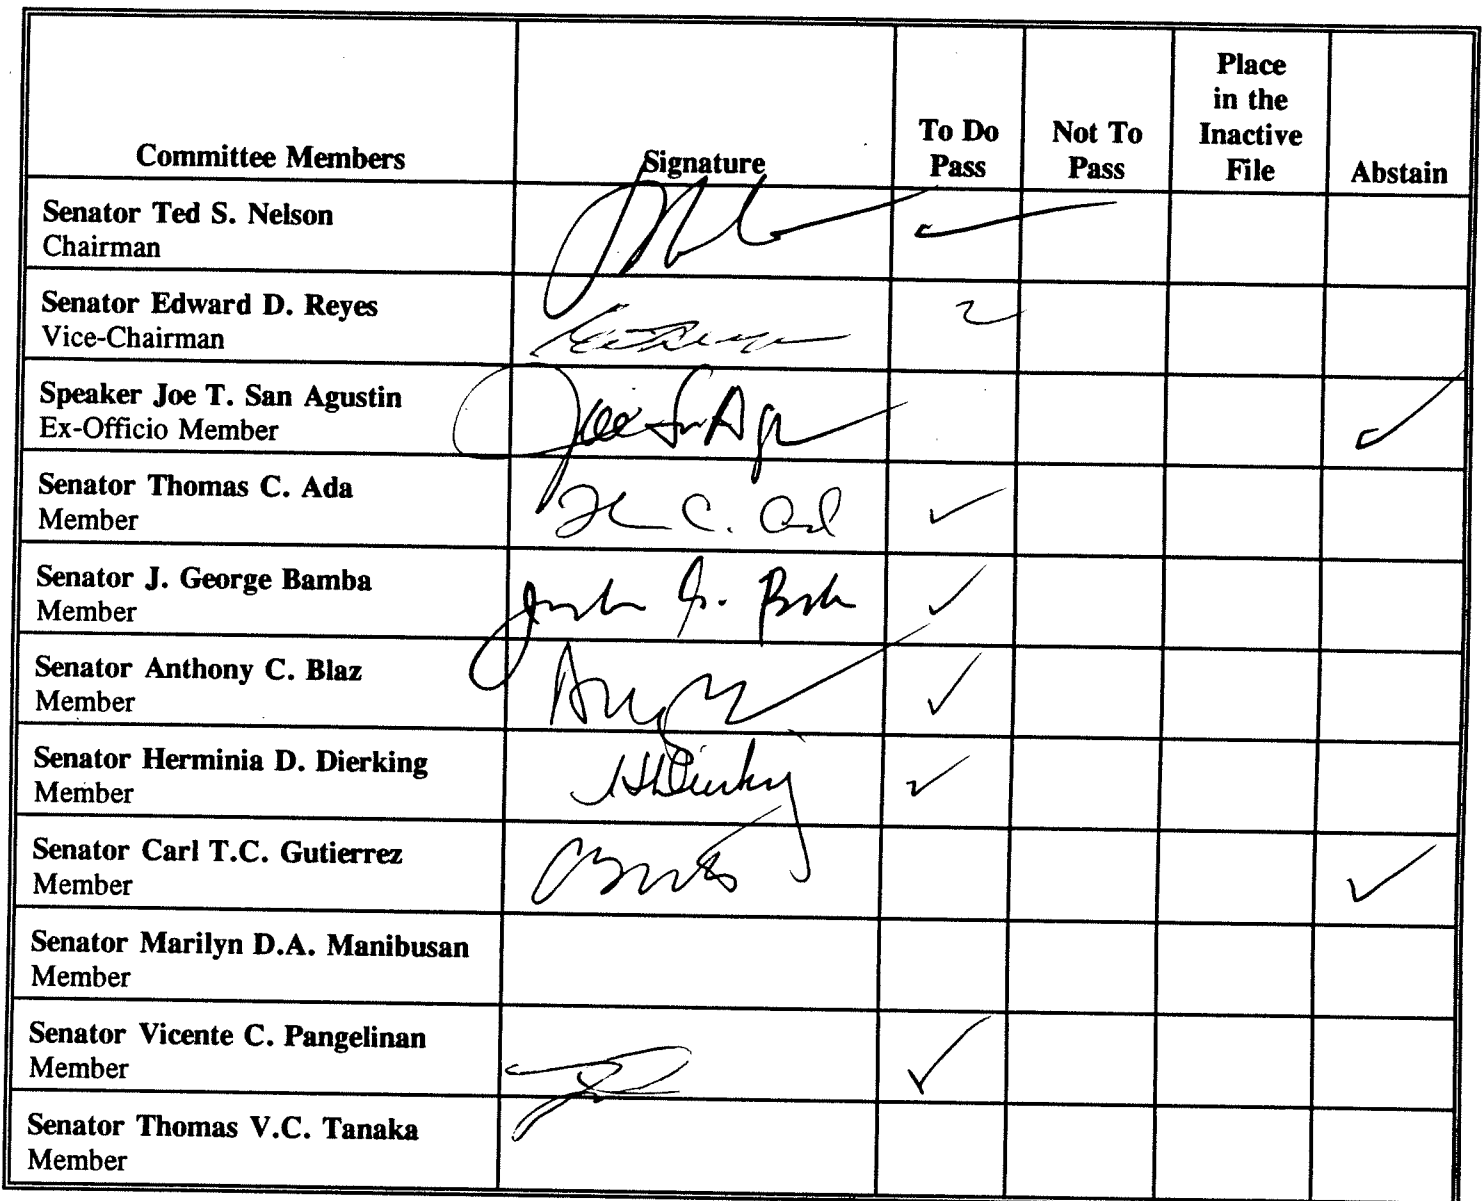 Committee Members Signature To Do Pass Not To Pass Place in the Inactive File Abstain
Senator Ted S. Nelson
Chairman
Senator Edward D. Reyes
Vice-Chairman
Speaker Joe T. San Agustin
Ex-Officio Member
Senator Thomas C. Ada
Member
Senator J. George Bamba
Member
Senator Anthony C. Blaz
Member
Senator Herminia D. Dierking
Member
Senator Carl T.C. Gutierrez
Member
Senator Marilyn D.A. Manibusan
Member
Senator Vicente C. Pangelinan
Member
Senator Thomas V.C. Tanaka
Member